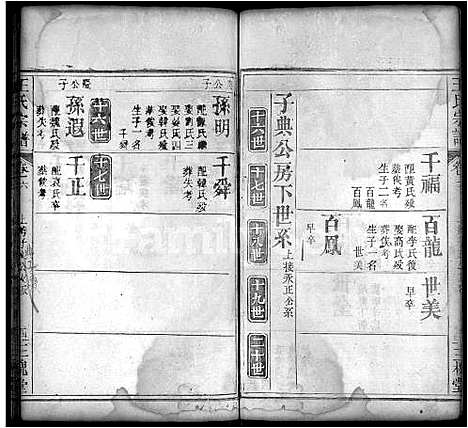 王氏宗譜
千福
配黃氏殁
葬俟考
生子二名
百龍
百鳳
百龍
配李氏後
娶高氏殁
葬俟考
生子一名
世美
百鳳
早卒
世美
早卒
子典公房下世系
上接永正公系
十六世
十七世
十八世
十九世
二十世
孫明
配鄭氏殁
娶姜氏四
娶韓氏殁
葬俟考
生子一名
千舜
千舜
配韓氏殁
葬失考
十六世
十七世
孫遐
配魏氏殁
葬失考
千正
配袁氏殁
葬俟考
王氏宗譜
卷六
三槐堂